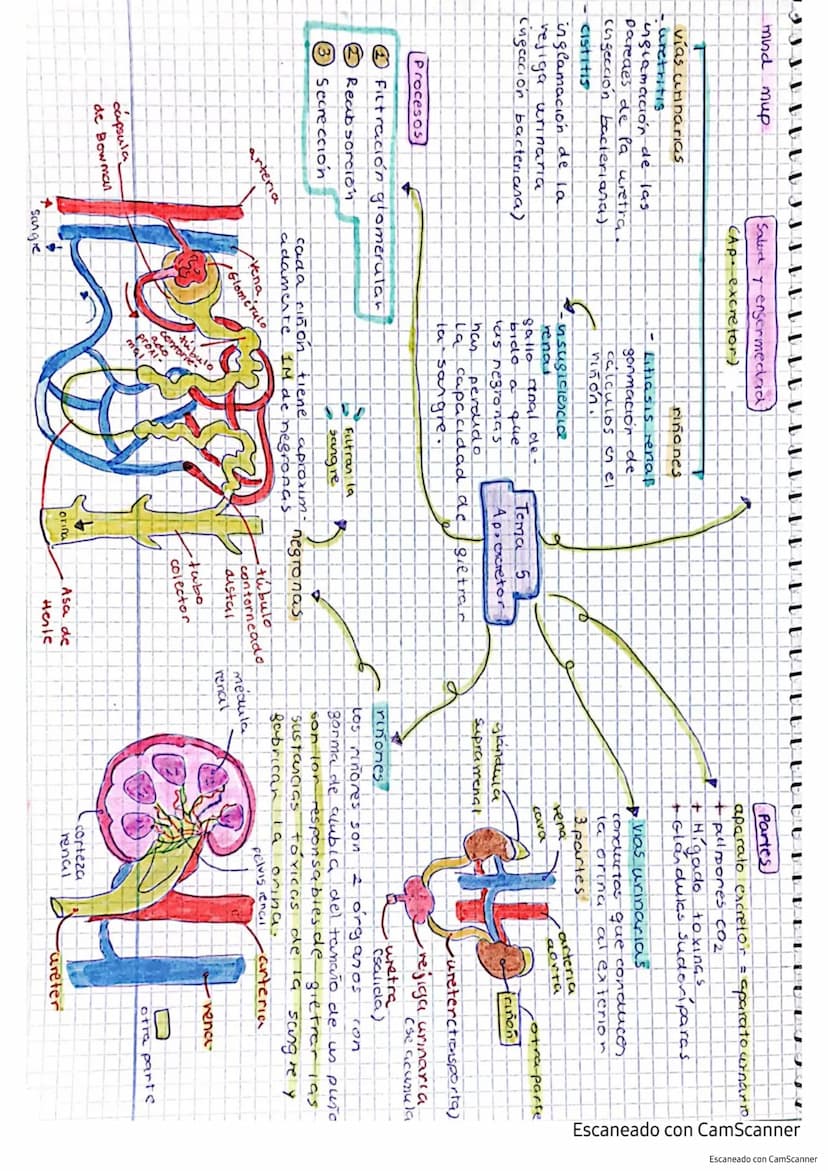 mind mup
Salud y enfermedad
(Ap. excretor)
vías urinarias
- uretritis
inflamación de las
paredes de la uretra.
(infección bacteriana)
- cistitis
inflamación de la
vejiga urinaria
(infección bacteriana)
riñones
- Litiasis renal
formación de
cálculos en el
riñón.
- insuficiencia
renal
fallo renal de-
bido a que
las nefronas
han perdido
la capacidad de filtrar
la sangre.
Tema 5
Ap. excretor
Partes
aparato excretor = aparato urinario
+ pulmones CO2
+ Hígado toxinas
+ Glándulas sudoríparas
vías urinarias
conductos que conducen
la orina al exterior
3 partes
vena
cava
arteria
aorta
glándula
suprarrenal
riñón
otra parte
uréter (transporta)
vejiga urinaria
(se acumula
uretra
(salida)
Procesos
1 Filtración glomerular
2 Reabsorción
3 Secreción
riñones
Los riñones son 2 órganos con
forma de alubia del tamaño de un puño
son los responsables de filtrar las
sustancias tóxicas de la sangre y
fabricar la orina.
nefronas
filtran la
sangre
cada riñón tiene aproxim-
adamente 1M de nefronas
arteria
cápsula
de Bowman
vena
Glomérulo
túbulo
contorne
ado
proxi
mal
sangre
orina
túbulo
contorneado
distal
tubo
colector
Asa de
Henle
médula
renal
corteza
renal
pelvis renal
arteria
vena
uréter
otra parte
Escaneado con CamScanner
Escaneado con CamScanner